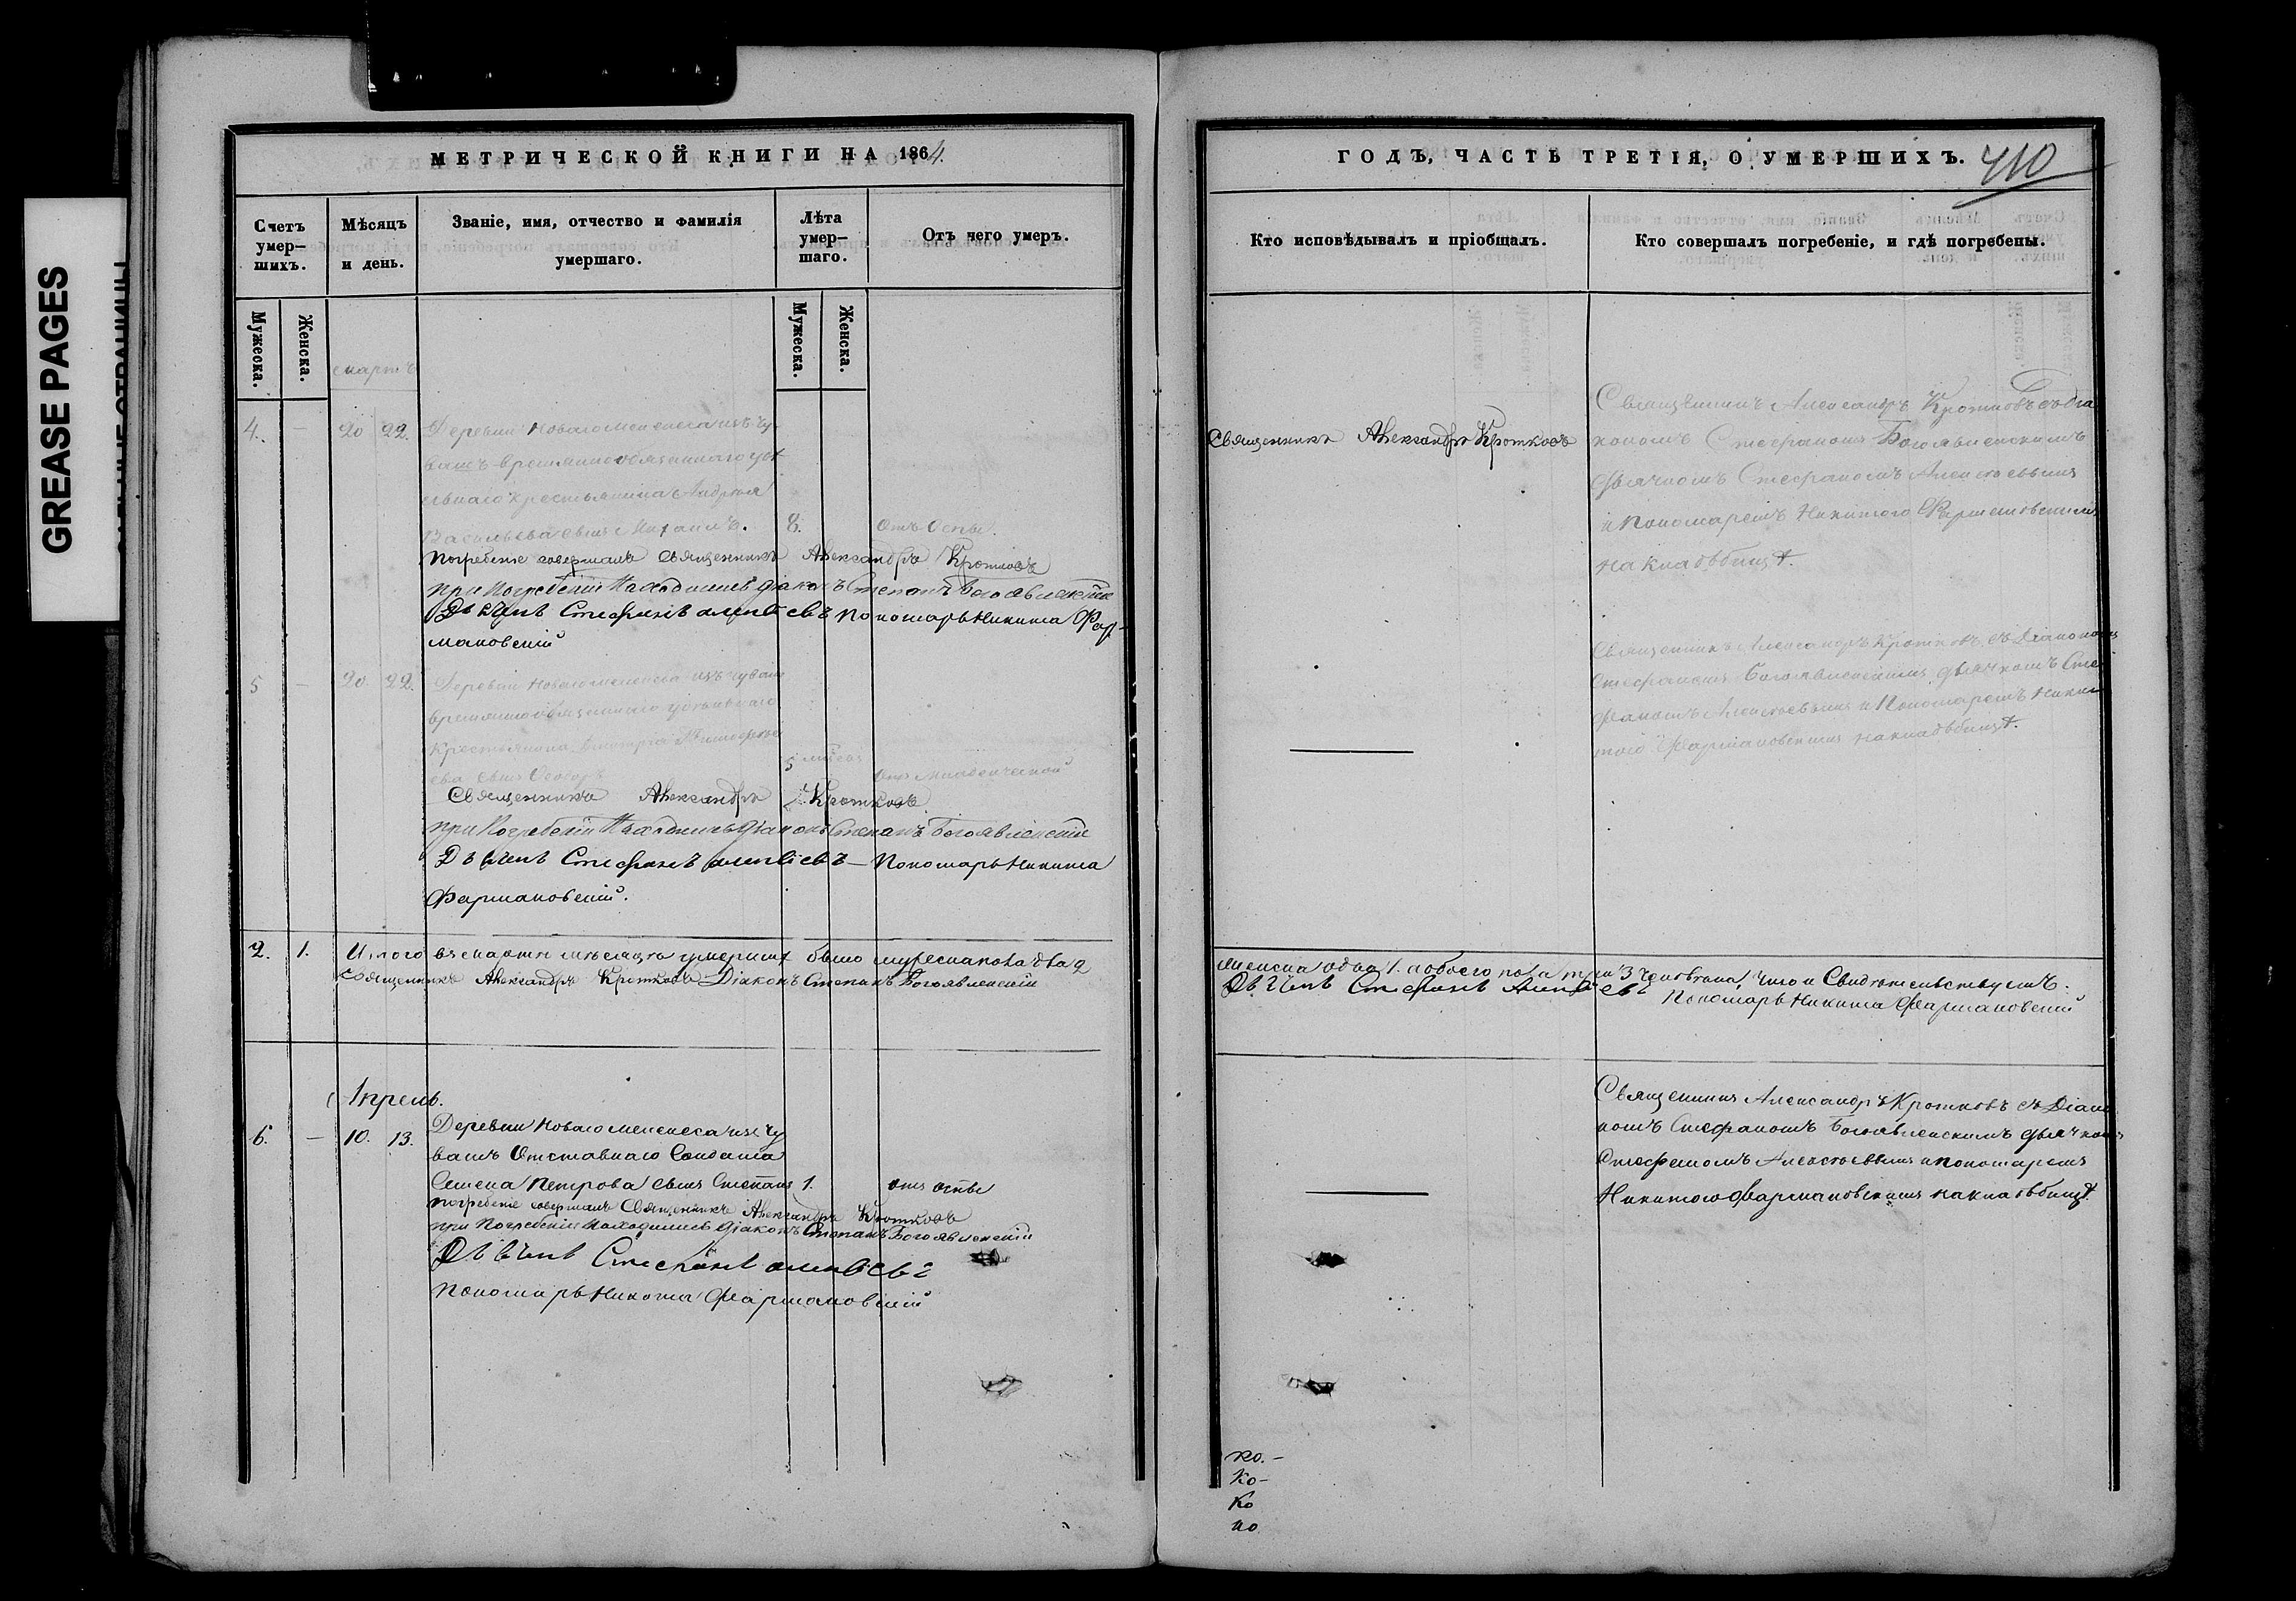 GREASE PAGES
МЕТРИЧЕСКОЙ КНИГИ НА 1864.
Счетъ умер-шихъ.
Мѣсяцъ и день.
Званіе, имя, отчество и фамилія умершаго.
Лѣта умер-шаго.
Отъ чего умеръ.
Мужеска.
Женска.
Мужеска.
Женска.
Мартъ
4. — 20 22. Деревни Новаго Мелекеса изъ чу-
вашъ временнообязаннаго удѣ
льнаго крестьянина Андрея
Васильева сынъ Михаилъ. 8. Отъ Оспы.
Погребеніе совершалъ Священникъ Александръ Кротковъ
при Погребеніи Находились Діаконъ Степанъ Богоявленскій
Дьячекъ Стефанъ Алексѣевъ Пономарь Никита Фар-
мановскій
5 — 20. 22. Деревни Новаго Мелекеса изъ чуваш
временнообязаннаго удѣльнаго
Крестьянина Дмитрія Тимофее
ева сынъ Ѳеодоръ 5 Отъ Младенческой
Священникъ Александръ Кротковъ
при Погребеніи Находились Діаконъ Степанъ Богоявленскій
Дьячекъ Стефанъ Алексѣевъ — Пономарь Никита
Фармановскій.
2. 1. Итого въ Мартѣ мѣсяцѣ умершихъ было мужеска пола два 2
Священникъ Александръ Кротковъ Діаконъ Степанъ Богоявленскій
Апрель.
6. — 10. 13. Деревни Новаго Мелекеса изъ Чу
вашъ Отставнаго Солдата
Семена Петрова сынъ Степанъ 1. отъ оспы
погребеніе совершалъ Священникъ Александръ Кротковъ
при Погребеніи Находились Діаконъ Степанъ Богоявленскій
Дьячекъ Стефанъ Алексѣевъ
Пономарь Никита Фармановскій
ГОДЪ, ЧАСТЬ ТРЕТІЯ, О УМЕРШИХЪ.
410
Кто исповѣдывалъ и пріобщалъ.
Кто совершалъ погребеніе, и гдѣ погребены.
Священникъ Александръ Кротковъ
Священникъ Александръ Кротковъ съ Діа
кономъ Стефаномъ Богоявленскимъ
дьячкомъ Стефаномъ Алексѣевымъ
и Пономаремъ Никитою Фармановскимъ
на кладбищѣ.
Священникъ Александръ Кротковъ съ Діакономъ
Стефаномъ Богоявленскимъ дьячкомъ Сте
фаномъ Алексѣевымъ и Пономаремъ Ники
тою Фармановскимъ на кладбищѣ.
женска одна 1. а обоего пола три 3 человѣка, Что и Свидѣтельствуемъ.
Дьячекъ Стефанъ Алексѣевъ
Пономарь Никита Фармановскій
Священникъ Александръ Кротковъ съ Діако
номъ Стефаномъ Богоявленскимъ дьячкомъ
Стефаномъ Алексѣевымъ и пономаремъ
Никитою Фармановскимъ на кладбищѣ.
ко.-
Ко-
Ко
но